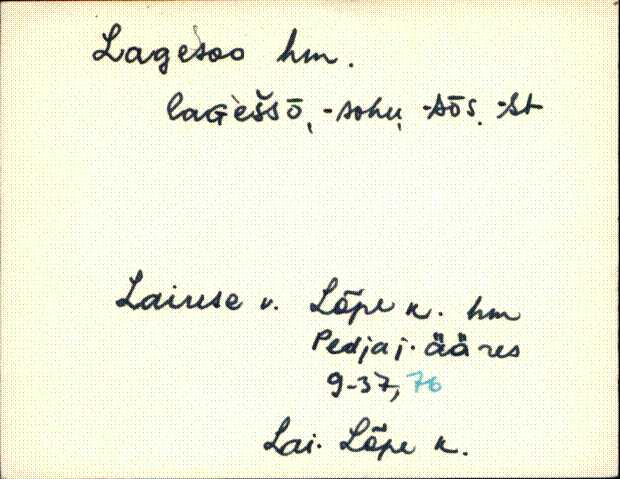 Lagesoo hm.
laGèšsō, -sohu, -sōs. -st
Laiuse v. Lõpe k. hm
Pedja j. ääres
9-37, 76
Lai. Lõpe k.